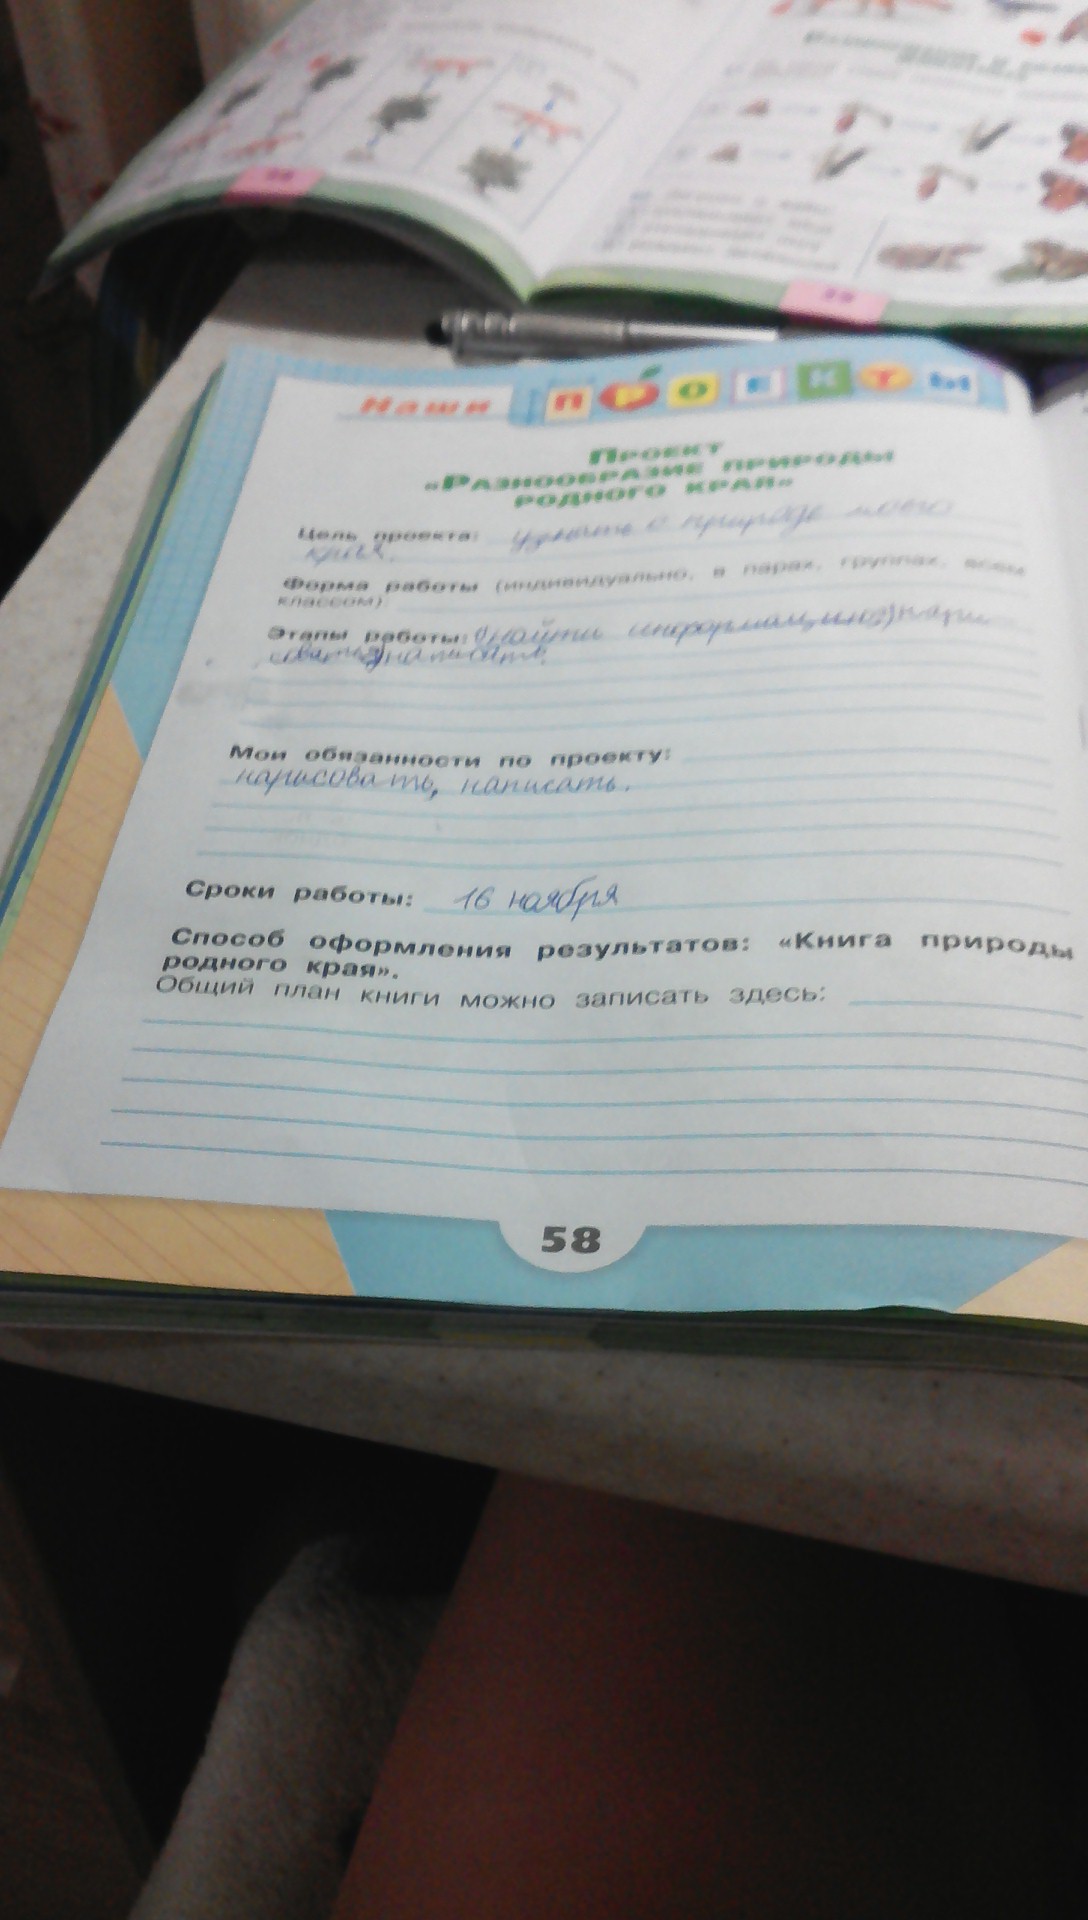 38
39
Наши ПРОЕКТЫ
Проект
«Разнообразие природы
родного края»
Цель проекта: узнать о природе моего
края.
Форма работы (индивидуально, в парах, группах, всем
классом):
Этапы работы: 1) найти информацию 2) нари
совать 3) написать.
Мои обязанности по проекту:
нарисовать, написать.
Сроки работы: 16 ноября
Способ оформления результатов: «Книга природы
родного края».
Общий план книги можно записать здесь:
58